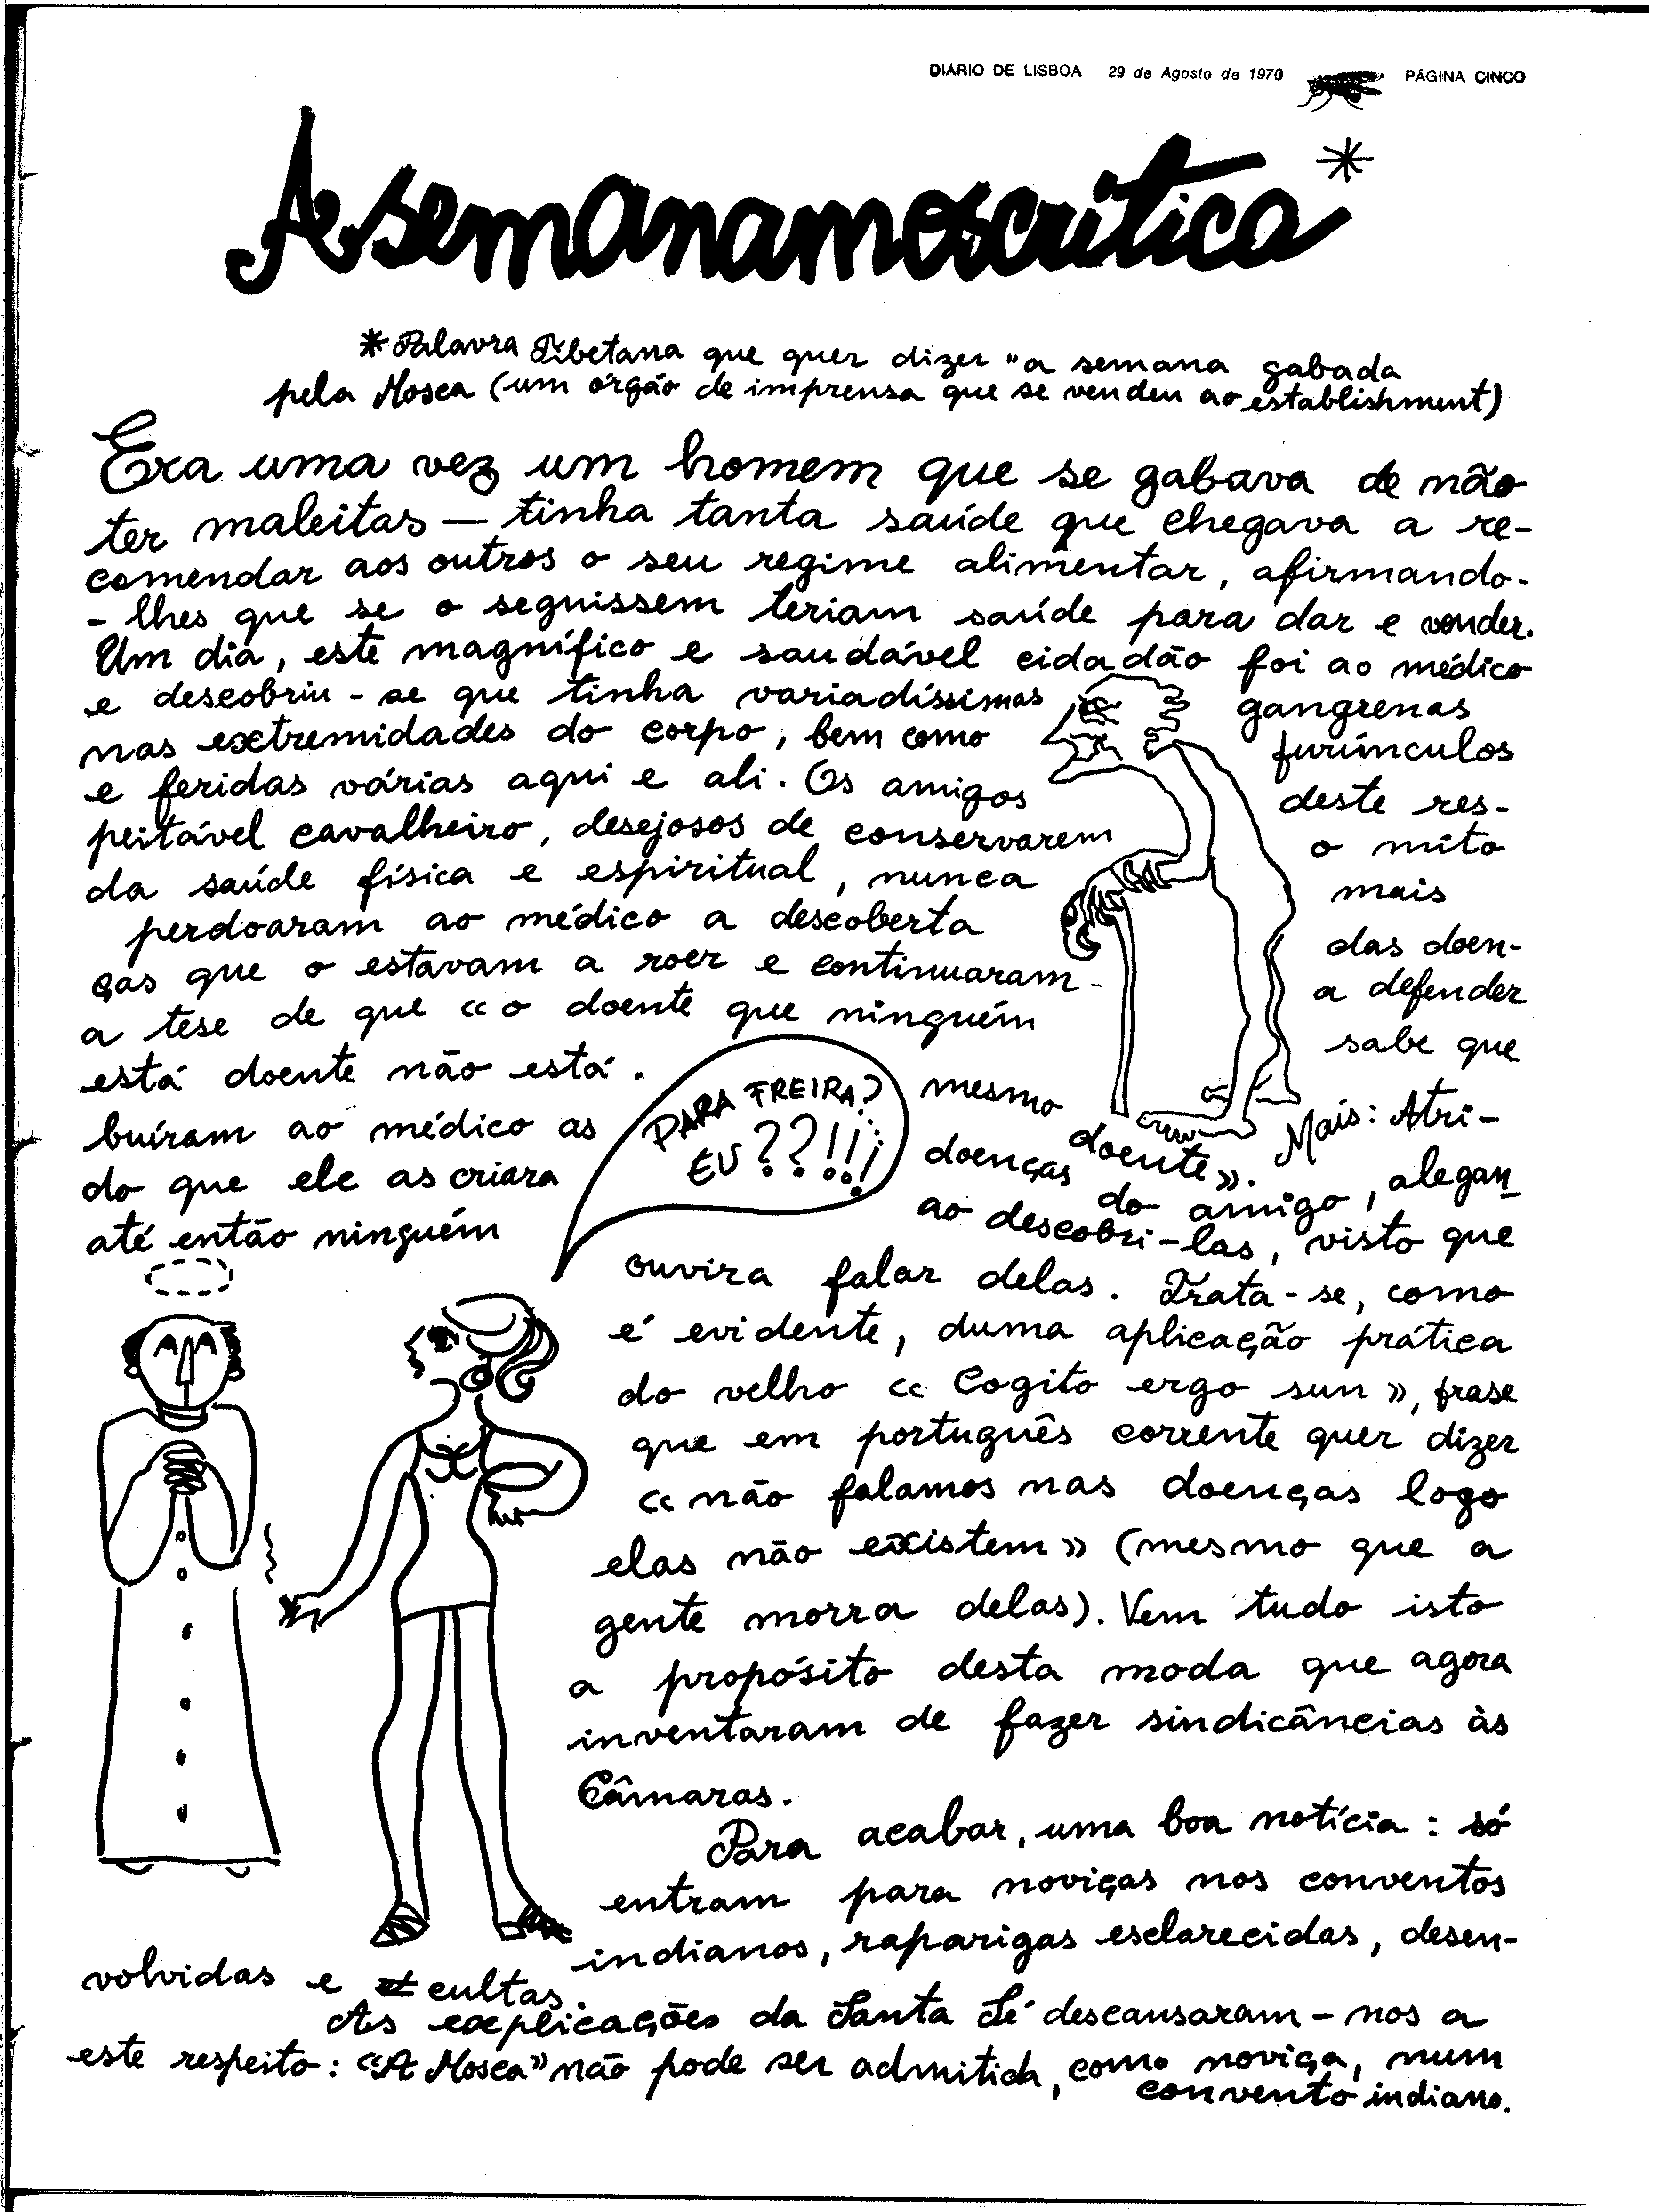 DIÁRIO DE LISBOA 29 de Agosto de 1970 PÁGINA CINCO
A semanamoscritica *
* Palavra Tibetana que quer dizer "a semana gabada
pela Mosca (um órgão de imprensa que se vendeu ao establishment)
Era uma vez um homem que se gabava de não
ter maleitas — tinha tanta saúde que chegava a re-
comendar aos outros o seu regime alimentar, afirmando-
- lhes que se o seguissem teriam saúde para dar e vender.
Um dia, este magnífico e saudável cidadão foi ao médico
e descobriu - se que tinha variadíssimas gangrenas
nas extremidades do corpo, bem como furúnculos
e feridas várias aqui e ali. Os amigos deste res-
peitável cavalheiro, desejosos de conservarem o mito
da saúde física e espiritual, nunca mais
perdoaram ao médico a descoberta das doen-
ças que o estavam a roer e continuaram - a defender
a tese de que «o doente que ninguém sabe que
está doente não está. mesmo doente». Mais: Atri-
buíram ao médico as doenças do amigo, alegan
do que ele as criara ao descobri-las, visto que
até então ninguém
PARA FREIRA?
EU??!!!
ouvira falar delas. Trata-se, como
é evidente, duma aplicação prática
do velho «Cogito ergo sun», frase
que em português corrente quer dizer
«não falamos nas doenças logo
elas não existem» (mesmo que a
gente morra delas). Vem tudo isto
a propósito desta moda que agora
inventaram de fazer sindicâncias às
Câmaras.
Para acabar, uma boa notícia: só
entram para noviças nos conventos
indianos, raparigas esclarecidas, desen-
volvidas e cultas.
As explicações da Santa Sé descansaram-nos a
este respeito: «A Mosca» não pode ser admitida, como noviça, num
convento indiano.